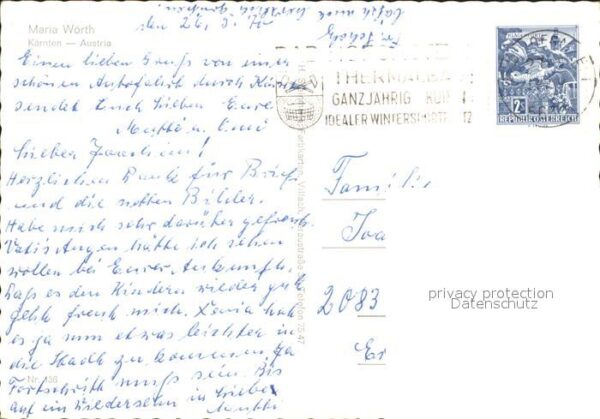 Maria Wörth
Kärnten — Austria
den 22.5.70
Einen lieben Gruß von einer
schönen Autofahrt durch Kärnten
sendet Euch Lieben Eure
Mutti u.
Lieber Joachim!
Herzlichen Dank für Brief
und die netten Bilder.
Habe mich sehr darüber gefreut.
Vatis Augen hätte ich sehen
wollen bei Eurer Ankunft.
Daß es den Kindern wieder gut
geht freut mich. Xenia hat
es ja nun etwas leichter in
die Stadt zu kommen. Ja
Fortschritt muß sein. Bis
auf ein Wiedersehn in Liebe
Mutti
Nr. 136
THERMALBA
GANZJÄHRIG KUR
IDEALER WINTERSPORT
2S
REPUBLIK ÖSTERREICH
Familie
Joa
2083
Er
privacy protection
Datenschutz